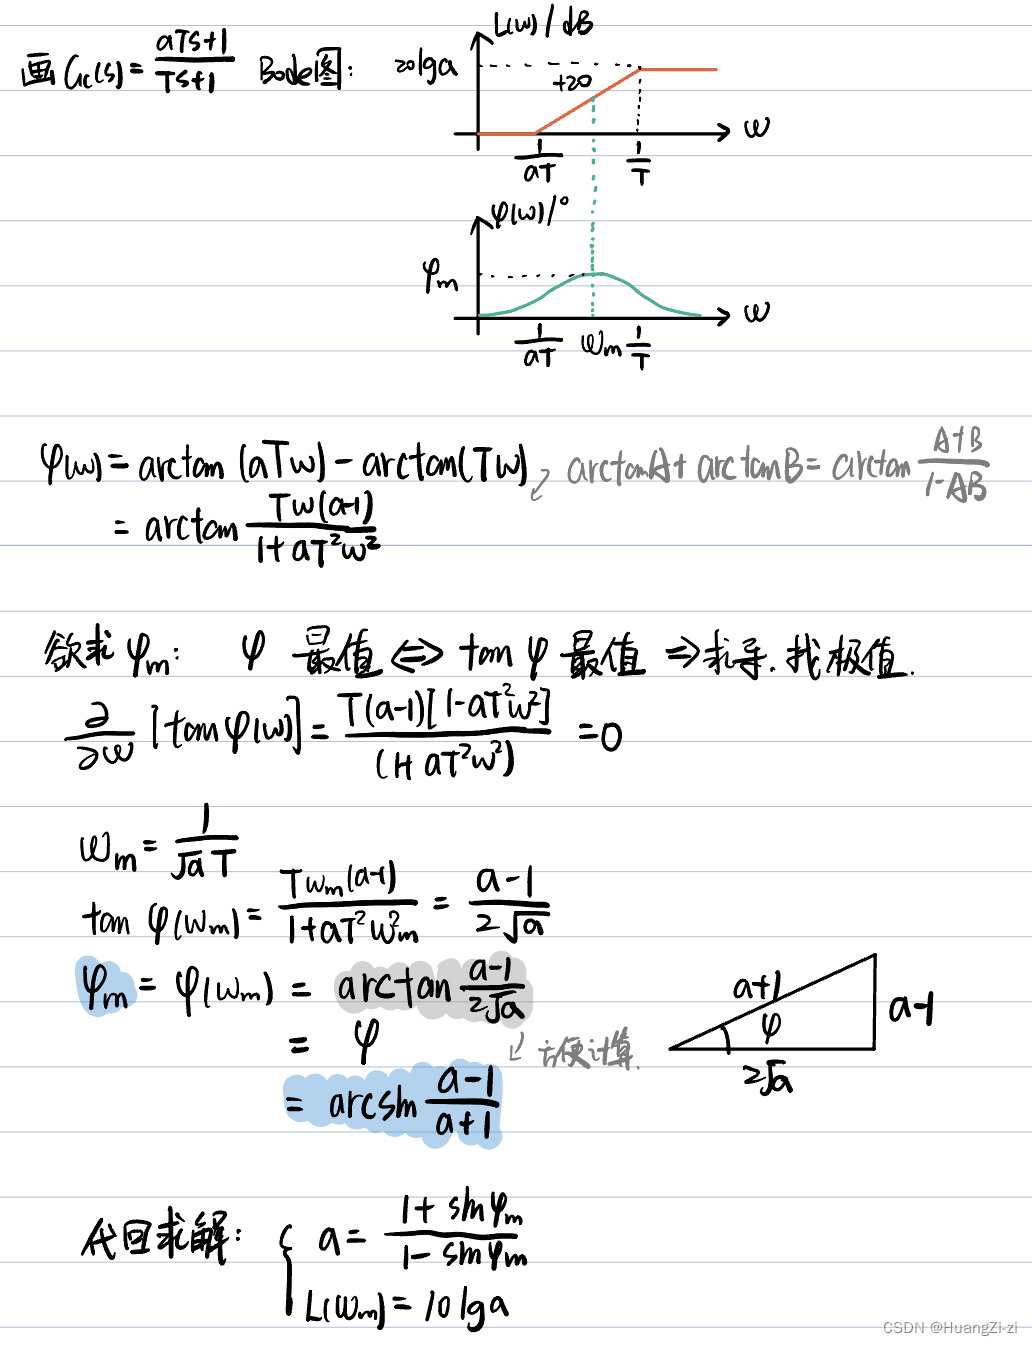 画 Gc(s) = (aTs+1)/(Ts+1) Bode图:
L(ω)/dB
20lga
+20
1/(aT) 1/T ω
φ(ω)/°
φm
1/(aT) ωm 1/T ω
φ(ω) = arctan (aTω) - arctan(Tω) arctanA + arctanB = arctan (A+B)/(1-AB)
= arctan Tω(a-1)/(1+aT²ω²)
欲求 φm: φ 最值 ⇔ tan φ 最值 ⇒ 求导. 找极值.
∂/∂ω [tan φ(ω)] = T(a-1)[1-aT²ω²]/(1+aT²ω²) = 0
ωm = 1/(√a T)
tan φ(ωm) = Tωm(a-1)/(1+aT²ωm²) = (a-1)/(2√a)
φm = φ(ωm) = arctan (a-1)/(2√a)
= φ 方便计算.
= arcsin (a-1)/(a+1)
a+1
φ
a-1
2√a
代回求解: { a = (1+sinφm)/(1-sinφm)
L(ωm) = 10lga
CSDN @HuangZi-zi